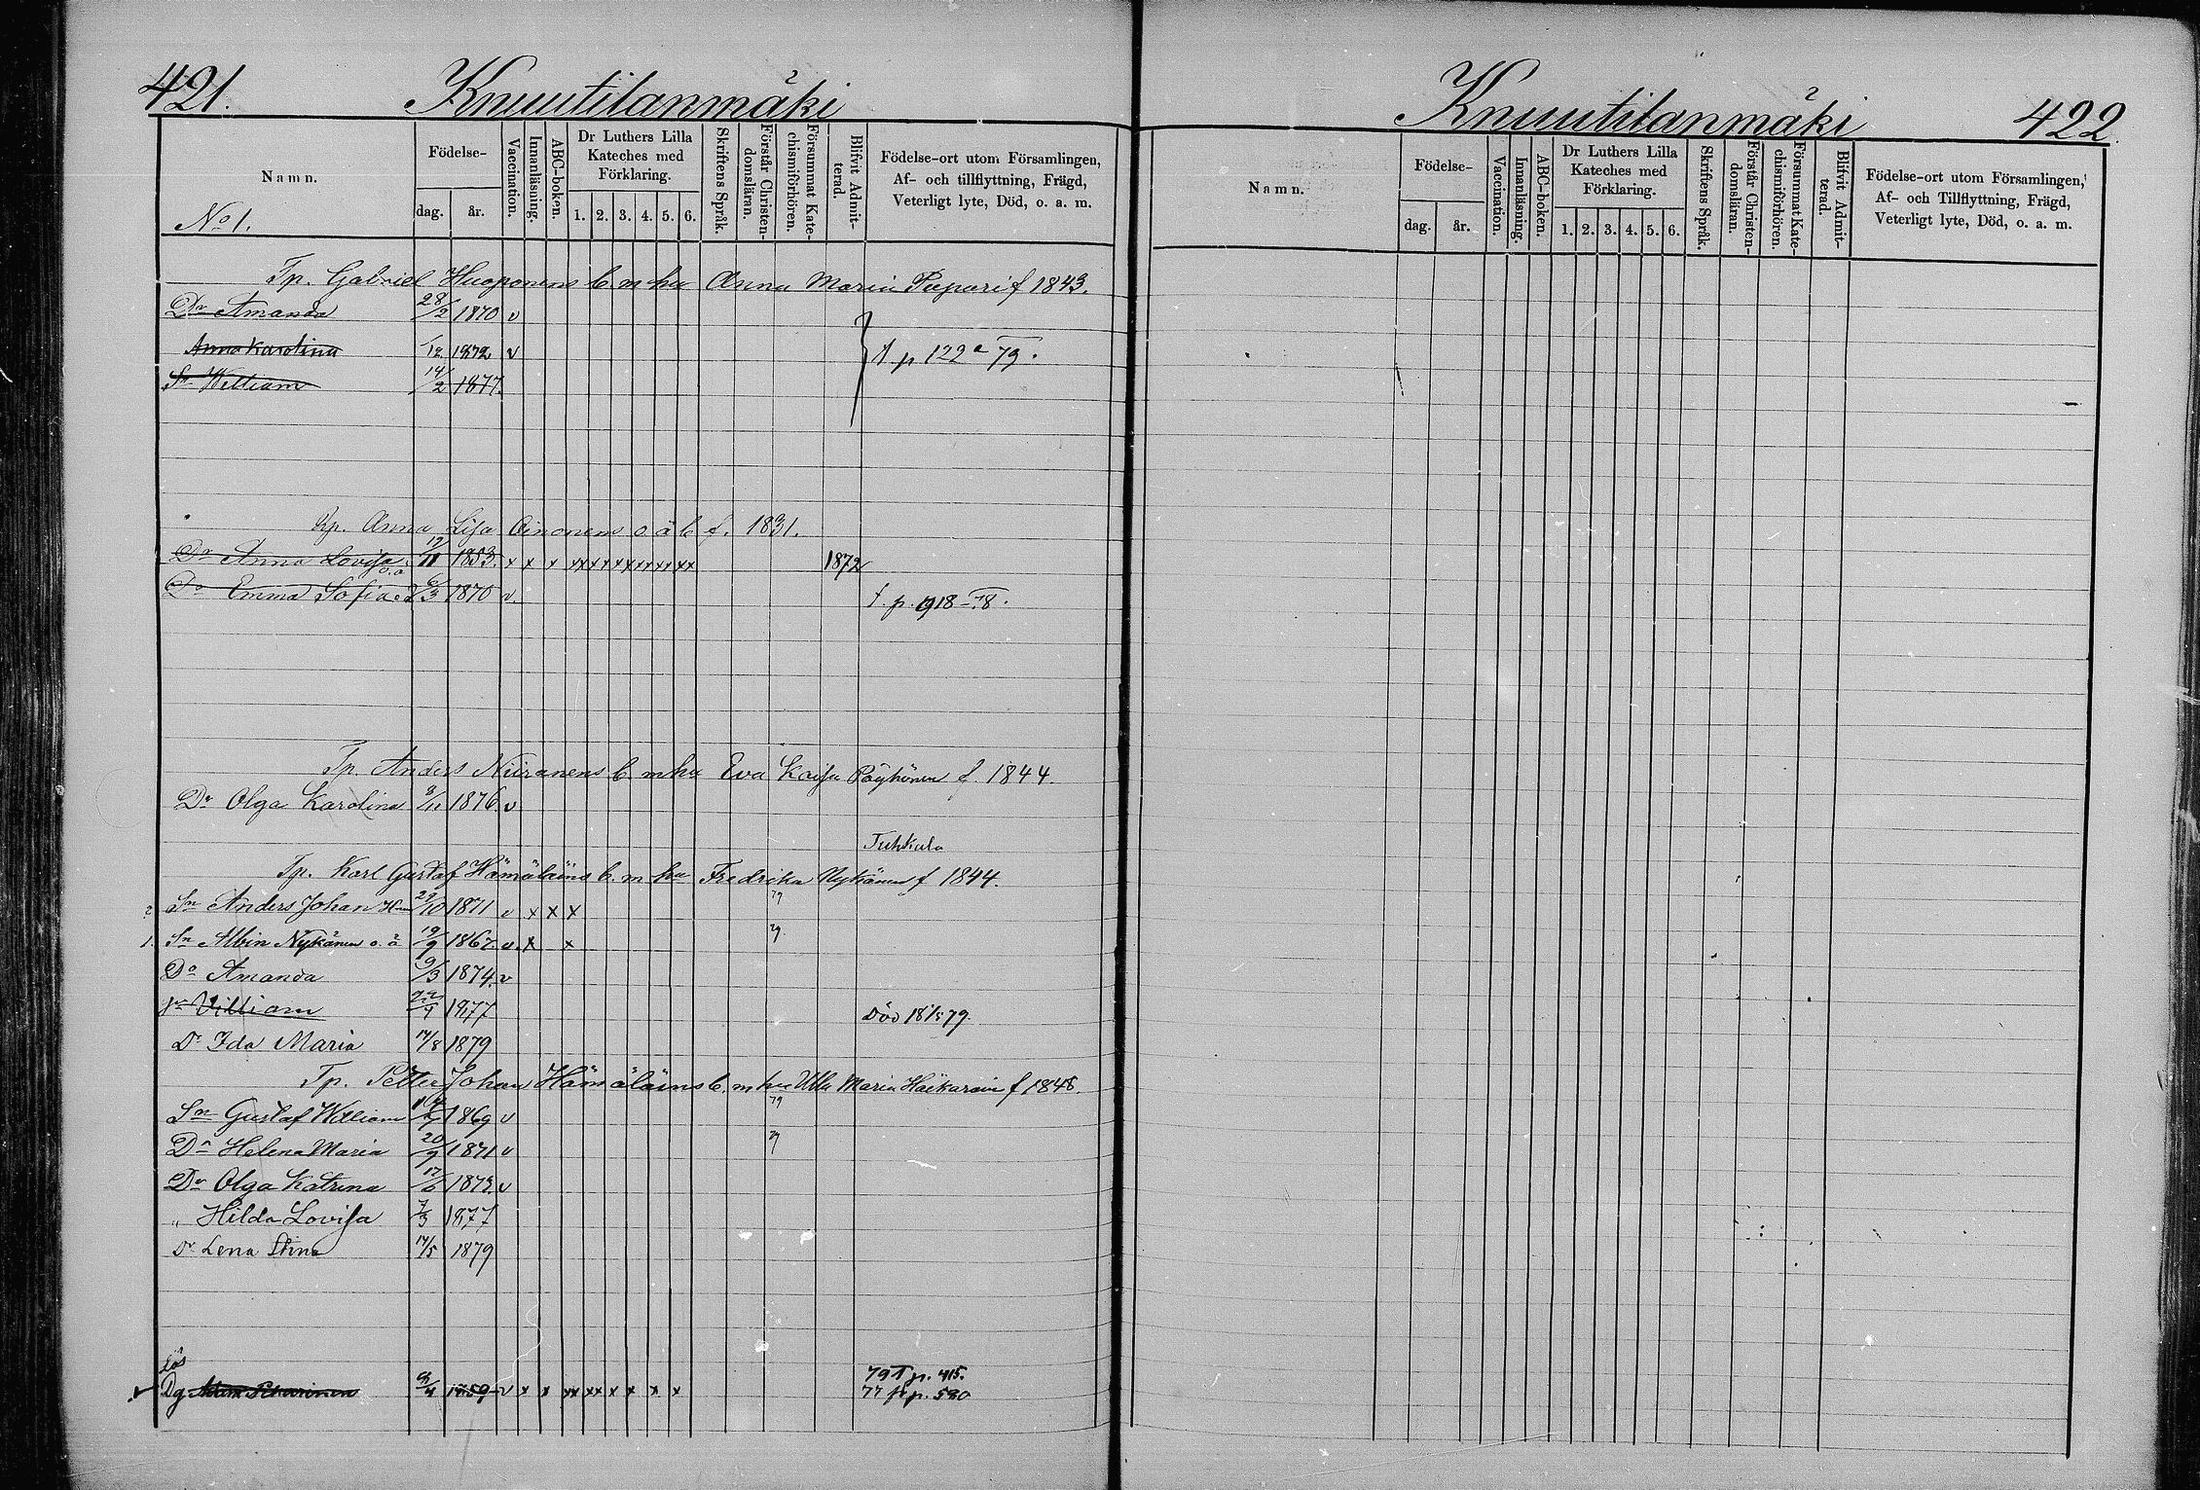 421. Knuutilanmäki
Namn. Födelse- dag. år. Vaccination. Innanläsning. ABC-boken. Dr Luthers Lilla Kateches med Förklaring. 1. 2. 3. 4. 5. 6. Skriftens Språk. Förstår Christendomsläran. Försummat Katechismiförhören. Blifvit Admitterad. Födelse-ort utom Församlingen, Af- och tillflyttning, Frägd, Veterligt lyte, Död, o. a. m.
No 1.
Tp. Gabriel Huoponens b. m hu Anna Maria f 1843.
Dr Amanda 28/2 1870 v
Anna Karolina /12 1872 v p 122 a 79.
Sn William 14/2 1877.
Anna Lisa Oinonens o ä b f. 1831.
Dr Anna Lovisa o. ä 1853. x x x xx xx x xx xx xx 1872
Dr Emma Sofia 6/3 1870 v. f. p. 918 - 78.
Tp. Anders Niiranens b. m hu Eva Kaisa Pöyhönen f. 1844.
Dr Olga Karolina 3/11 1876. v
Tuhkala
Tp. Karl Gustaf Hämäläins b. m hu Fredrika Nykänen f 1844.
2 Sn Anders Johan 29/10 1871 v x x x 79
1. Sn Albin Nykänen o. ä 19/9 1867. v. x x 79.
Dr Amanda 9/3 1874. v
Sn Villiam 22/4 1877 Död 18/5 79.
Dr Ida Maria 14/8 1879
Tp. Petter Johan Hämäläins b. m hu Ulla Maria f 1848.
Sn Gustaf William 1869 v 79
Dr Helena Maria 20/9 1871 v 79
Dr Olga Katrina 17/6 1873. v
" Hilda Lovisa 7/3 1877
Dr Lena Stina 14/5 1879
lös
Dg 1859 v x x xx xx x x x x 79 p. 415.
77 p. 580
Knuutilanmäki 422.
Namn. Födelse- dag. år. Vaccination. Innanläsning. ABC-boken. Dr Luthers Lilla Kateches med Förklaring. 1. 2. 3. 4. 5. 6. Skriftens Språk. Förstår Christendomsläran. Försummat Katechismiförhören. Blifvit Admitterad. Födelse-ort utom Församlingen, Af- och Tillflyttning, Frägd, Veterligt lyte, Död, o. a. m.